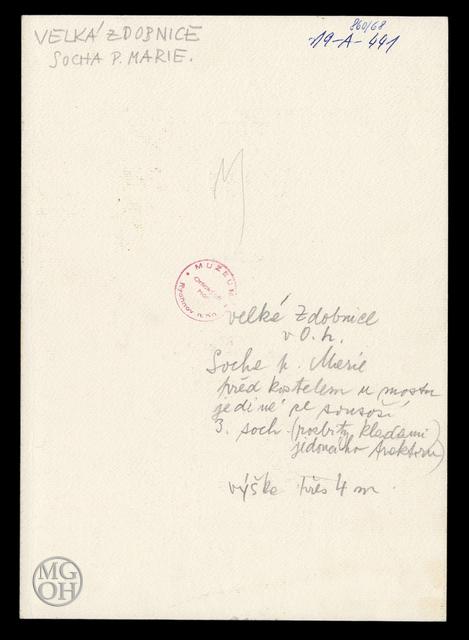 VELKÁ ZDOBNICE
SOCHA P. MARIE.
860/68
19-A-441
M
MUZEUM
Orlických
hor
Rychnov n. Kn.
Velké Zdobnice
v O. h.
Socha p. Marie
před kostelem u mostu
jediné ze sousoší
3. soch (rozbity kladami
jedoucího traktoru)
výška přes 4 m.
MG
OH